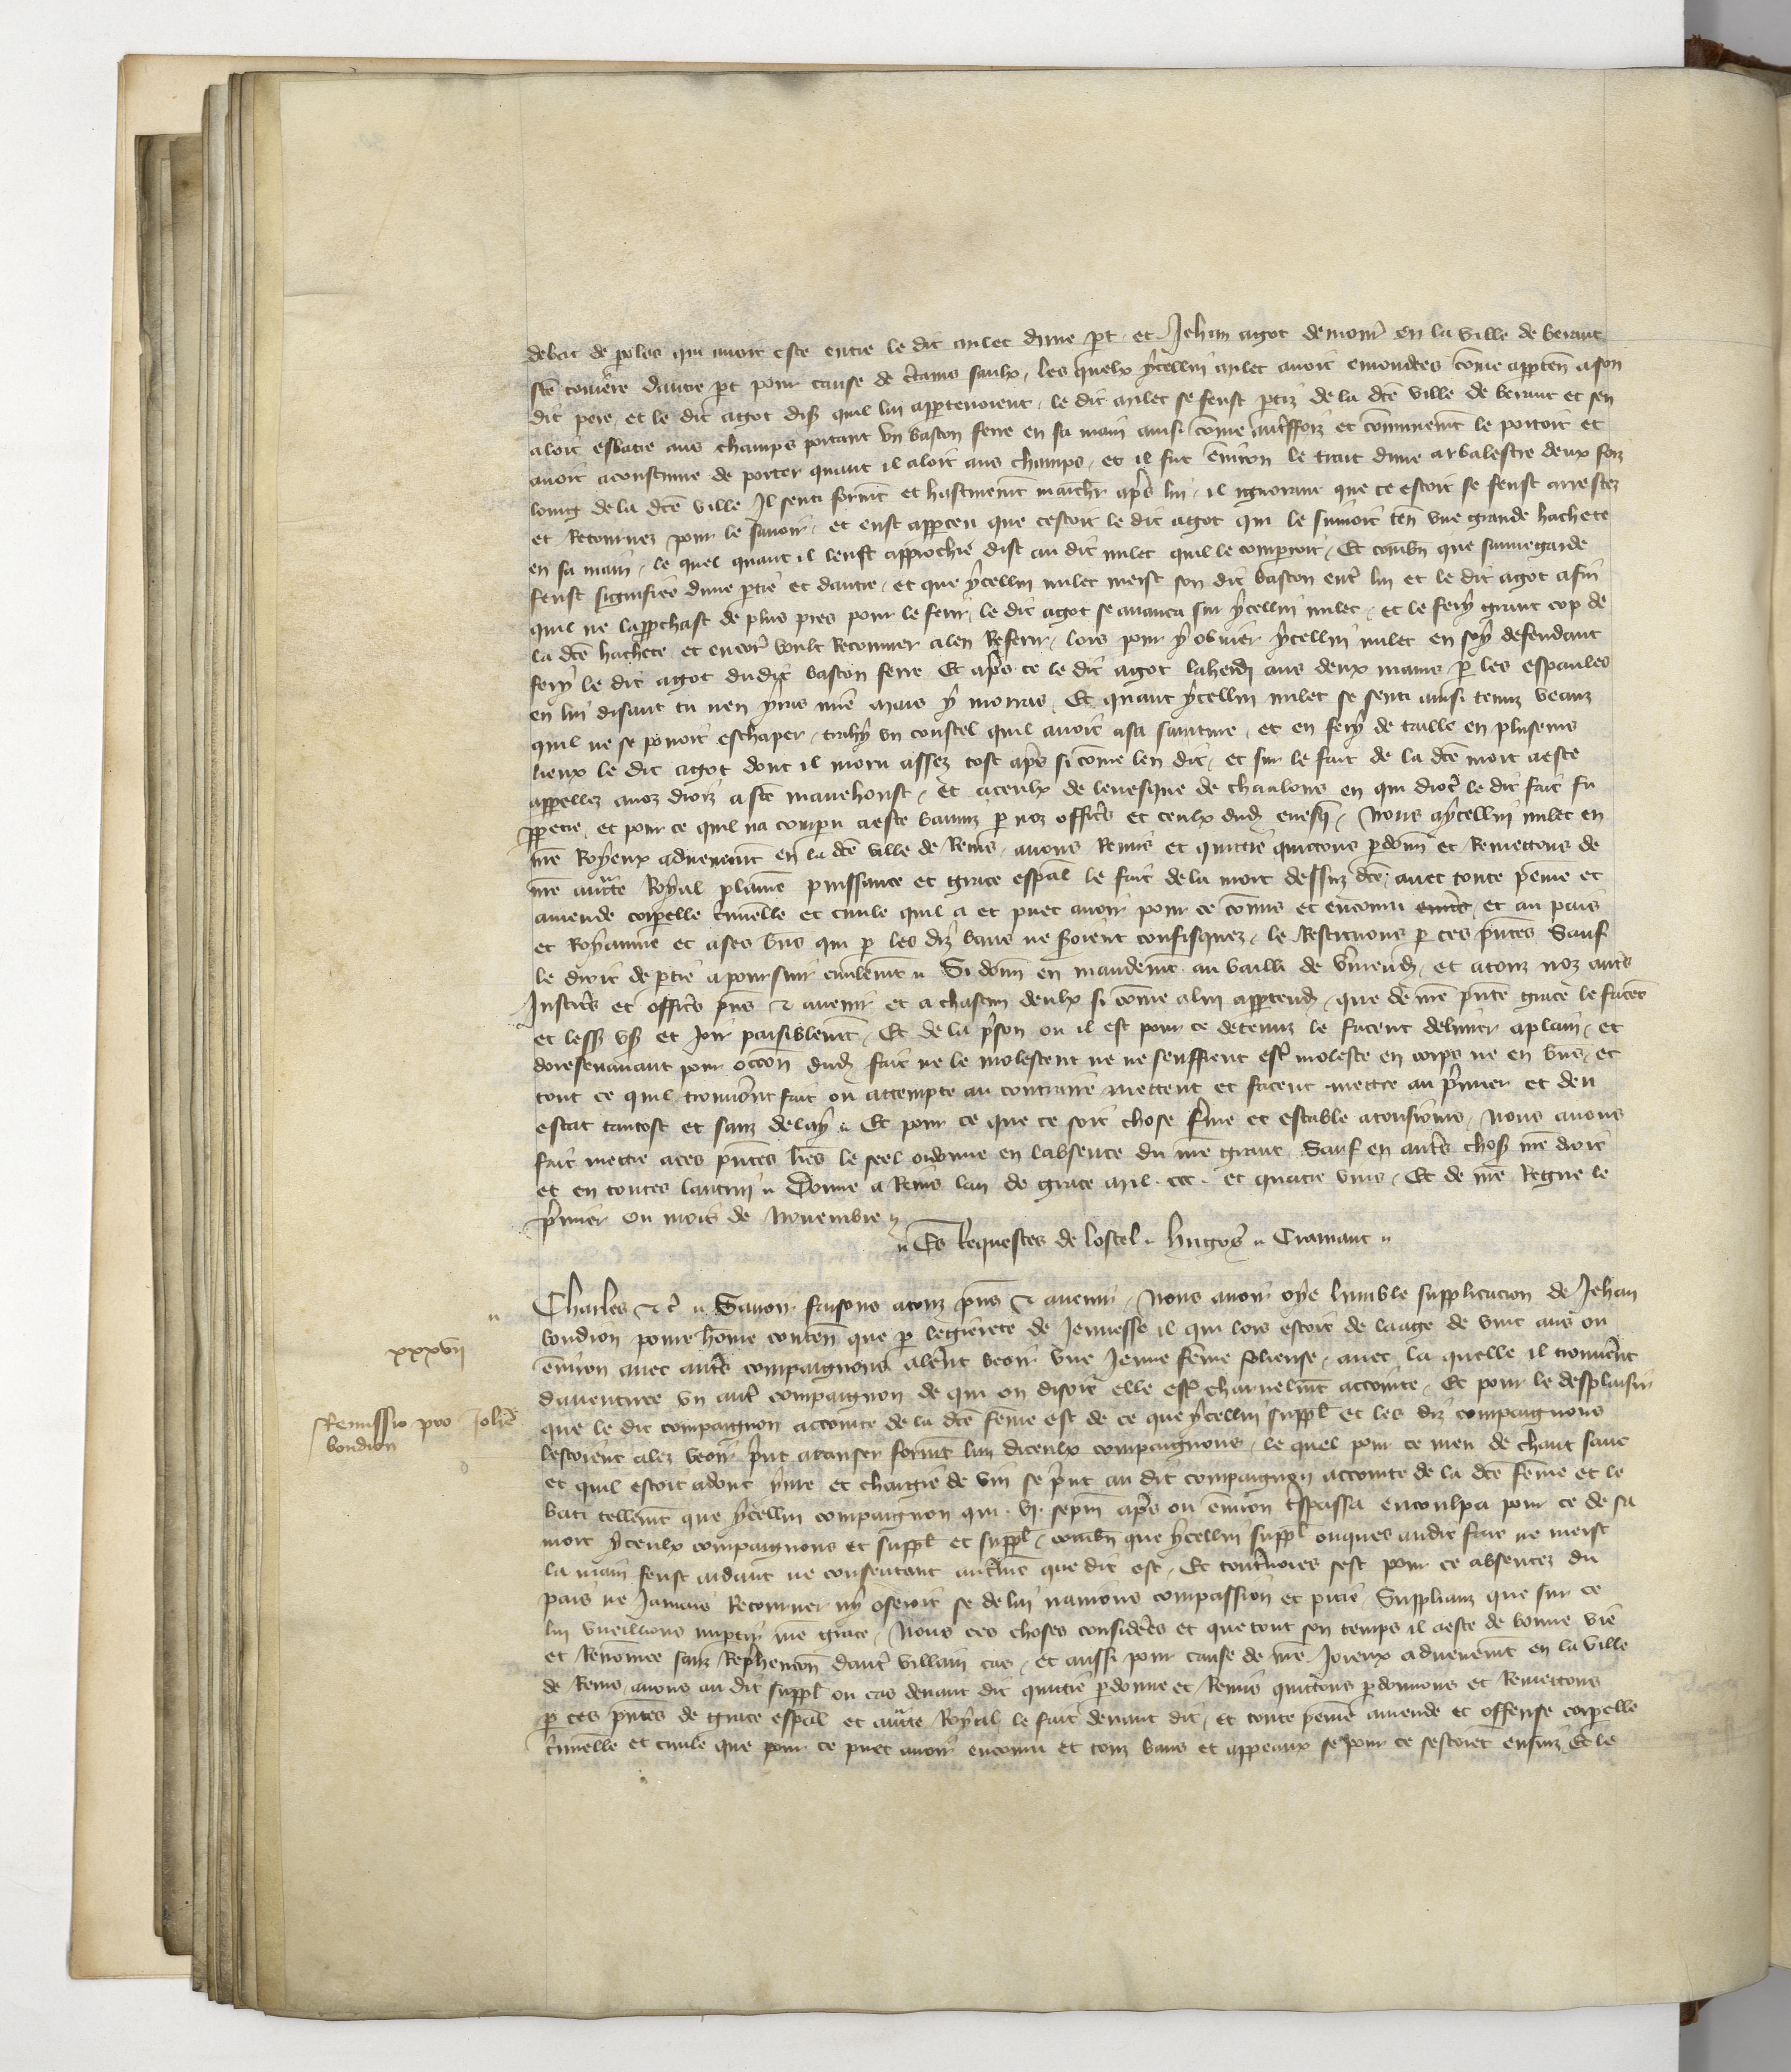 debat de paroles qui avoit este entre le dit milet dune part et Jehan agot demorant en la ville de beraut
ste couiere dautre part pour cause de certains saulx les quelx ycellui milet avoit emondees comme appartenans a son
dit pere et le dit agot disoit quil lui appartenoient le dit milet se feust partiz de la dicte ville de beraut et sen
aloit esbatre aus champs portant un baston ferre en sa main ainsi comme autreffoiz et communement le portoit et
avoit acoustume de porter quant il aloit aus champs et il fut environ le trait dune arbalestre deux foiz
loing de la dicte ville Il senti forment et hastivement marcher apres lui il ignorant que ce estoit se feust arrestez
et Retournez pour le savoir et eust apperceu que cestoit le dit agot qui le suivoit tenant une grande hachete
en sa main le quel quant il leust approchie dist au dit milet quil le comparroit Et combien que sauvegarde
feust signifiee dune partie et dautre et que ycellui milet meist son dit baston entre lui et le dit agot afin
quil ne lapprochast de plus pres pour le ferir le dit agot se avanca sur ycellui milet et le fery grant cop de
la dicte hachete et encor voult Recouvrer a len Referir lors pour y obvier ycellui milet en soy defendant
fery le dit agot dudit baston ferre Et apres ce le dit agot laherdi aus deux mains par les espaules
en lui disant tu nen yras mie mais y morras Et quant ycellui milet se senti ainsi tenuz veanz
quil ne se povoit eschaper trahy un coustel quil avoit a sa sainture et en fery de taille en pluseurs
lieux le dit agot dont il moru assez tost apres si comme len dit et sur le fait de la dicte mort a este
appellez a noz droiz a ste manehoust et a ceulx de levesque de chaalons en qui dioc le dit fait fu
perpetre et pour ce quil na compru a este banniz par noz officiers et ceulx dudit evesque Nous a ycellui milet en
nostre Royeux advenement en la dicte ville de Reins avons Remis et quittie quittons pardonnons et Remettons de
nostre auctorite Royal plaine puissance et grace especial le fait de la mort dessus dicte avec toute peine et
amende corporelle criminelle et civile quil a et puet avoir pour ce commis et encouru et au pais
et Royaume et a ses biens qui par les diz bans ne soient confisquez le Restituons par ces presentes Sauf
le droit de partie a poursuir civilement Si donnons en mandement au bailli de vermendois et a touz noz autres
Justiciers et officiers presens et avenir et a chascun deulx si comme a lui appartendra que de nostre presente grace le facent
et lessent user et Joir paisiblement Et de la prison ou il est pour ce detenuz le facent delivrer a plain et
doresenavant pour occasion dudit fait ne le molestent ne ne seuffrent estre moleste en corps ne en biens et
tout ce quil trouveront fait ou attempte au contraire mettent et facent mettre au premier et deu
estat tantost et sanz delay Et pour ce que ce soit chose ferme et estable a tousjours Nous avons
fait mettre a ces presentes lettres le seel ordonne en labsence du nostre grant Sauf en autres choses nostre droit
et en toutes lautrui Donne a Reins lan de grace mil ccc et quatre vins Et de nostre Regne le
premier ou mois de Novembre
Es Requestes de lostel hugos Cramaut
Charles etc Savoir faisons a touz presens et avenir Nous avoir oye lumble supplicacion de Jehan
boudion povre homme contenant que par legierete de Jeunesse il qui lors estoit de laage de vint ans ou
environ avec autres compaignons alerent veoir une Jeune femme folieuse avec la quelle il trouverent
daventuree un autre compaignon de qui on disoit elle estre charnelment accointe Et pour le desplaisir
que le dit compaignon accointe de la dicte femme est de ce que ycellui suppliant et les diz compaignons
lestoient alez veoir prist a tanser forment lun diceulx compaignons le quel pour ce meu de chaut sanc
et quil estoit adont yvre et chargie de vin se prist au dit compaignon accointe de la dicte femme et le
bati tellement que ycellui compaignon qui vi sepmaines apres ou environ trespassa encoulpa pour ce de sa
mort yceulx compaignons et suppliant et suppliant combien que ycellui suppliant onques audit fait ne meist
la main feust aidant ne consentant autrement que dit est Et toutevoies sest pour ce absentez du
pais ne Jamais Retourner ny oseroit se de lui navions compassion et pitie Suppliant que sur ce
lui vueillions impartir nostre grace Nous ces choses considerees et que tout son temps il a este de bonne vie
et Renommee sanz Reprehencion dautre villain cas et aussi pour cause de nostre Joieux advenement en la ville
de Reins avons au dit suppliant ou cas devant dit quittie pardonne et Remis quittons pardonnons et Remettons
par ces presentes de grace especial et auctorite Royal le fait devant dit et toute peine amende et offense corporelle
criminelle et civile que pour ce puet avoir encouru et touz bans et appeaux se pour ce sestoient ensuiz Et le
xxxvii
Remissio pro Johanne
boudion